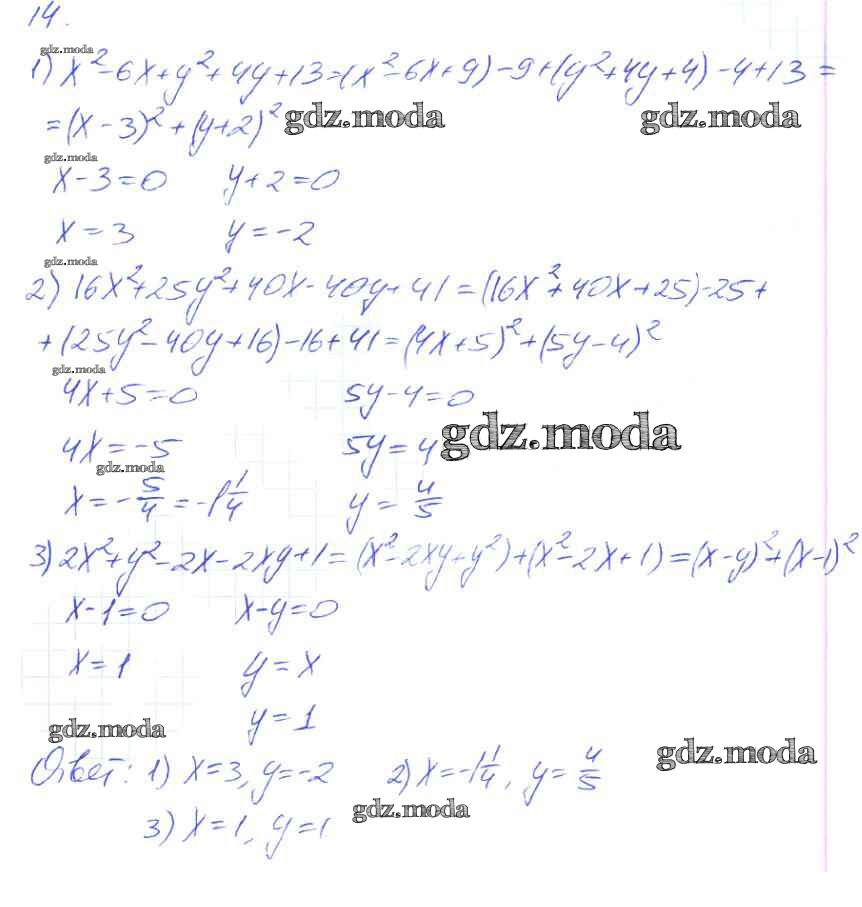 14.
gdz.moda
1) x² - 6x + y² + 4y + 13 = (x² - 6x + 9) - 9 + (y² + 4y + 4) - 4 + 13 =
= (x - 3)² + (y + 2)² gdz.moda gdz.moda
gdz.moda
x - 3 = 0 y + 2 = 0
x = 3 y = -2
gdz.moda
2) 16x² + 25y² + 40x - 40y + 41 = (16x² + 40x + 25) - 25 +
+ (25y² - 40y + 16) - 16 + 41 = (4x + 5)² + (5y - 4)²
gdz.moda
4x + 5 = 0 5y - 4 = 0
4x = -5 5y = 4 gdz.moda
gdz.moda
x = -5/4 = -1 1/4 y = 4/5
3) 2x² + y² - 2x - 2xy + 1 = (x² - 2xy + y²) + (x² - 2x + 1) = (x - y)² + (x - 1)²
x - 1 = 0 x - y = 0
x = 1 y = x
y = 1
gdz.moda gdz.moda
Ответ: 1) x = 3, y = -2 2) x = -1 1/4, y = 4/5
gdz.moda
3) x = 1, y = 1